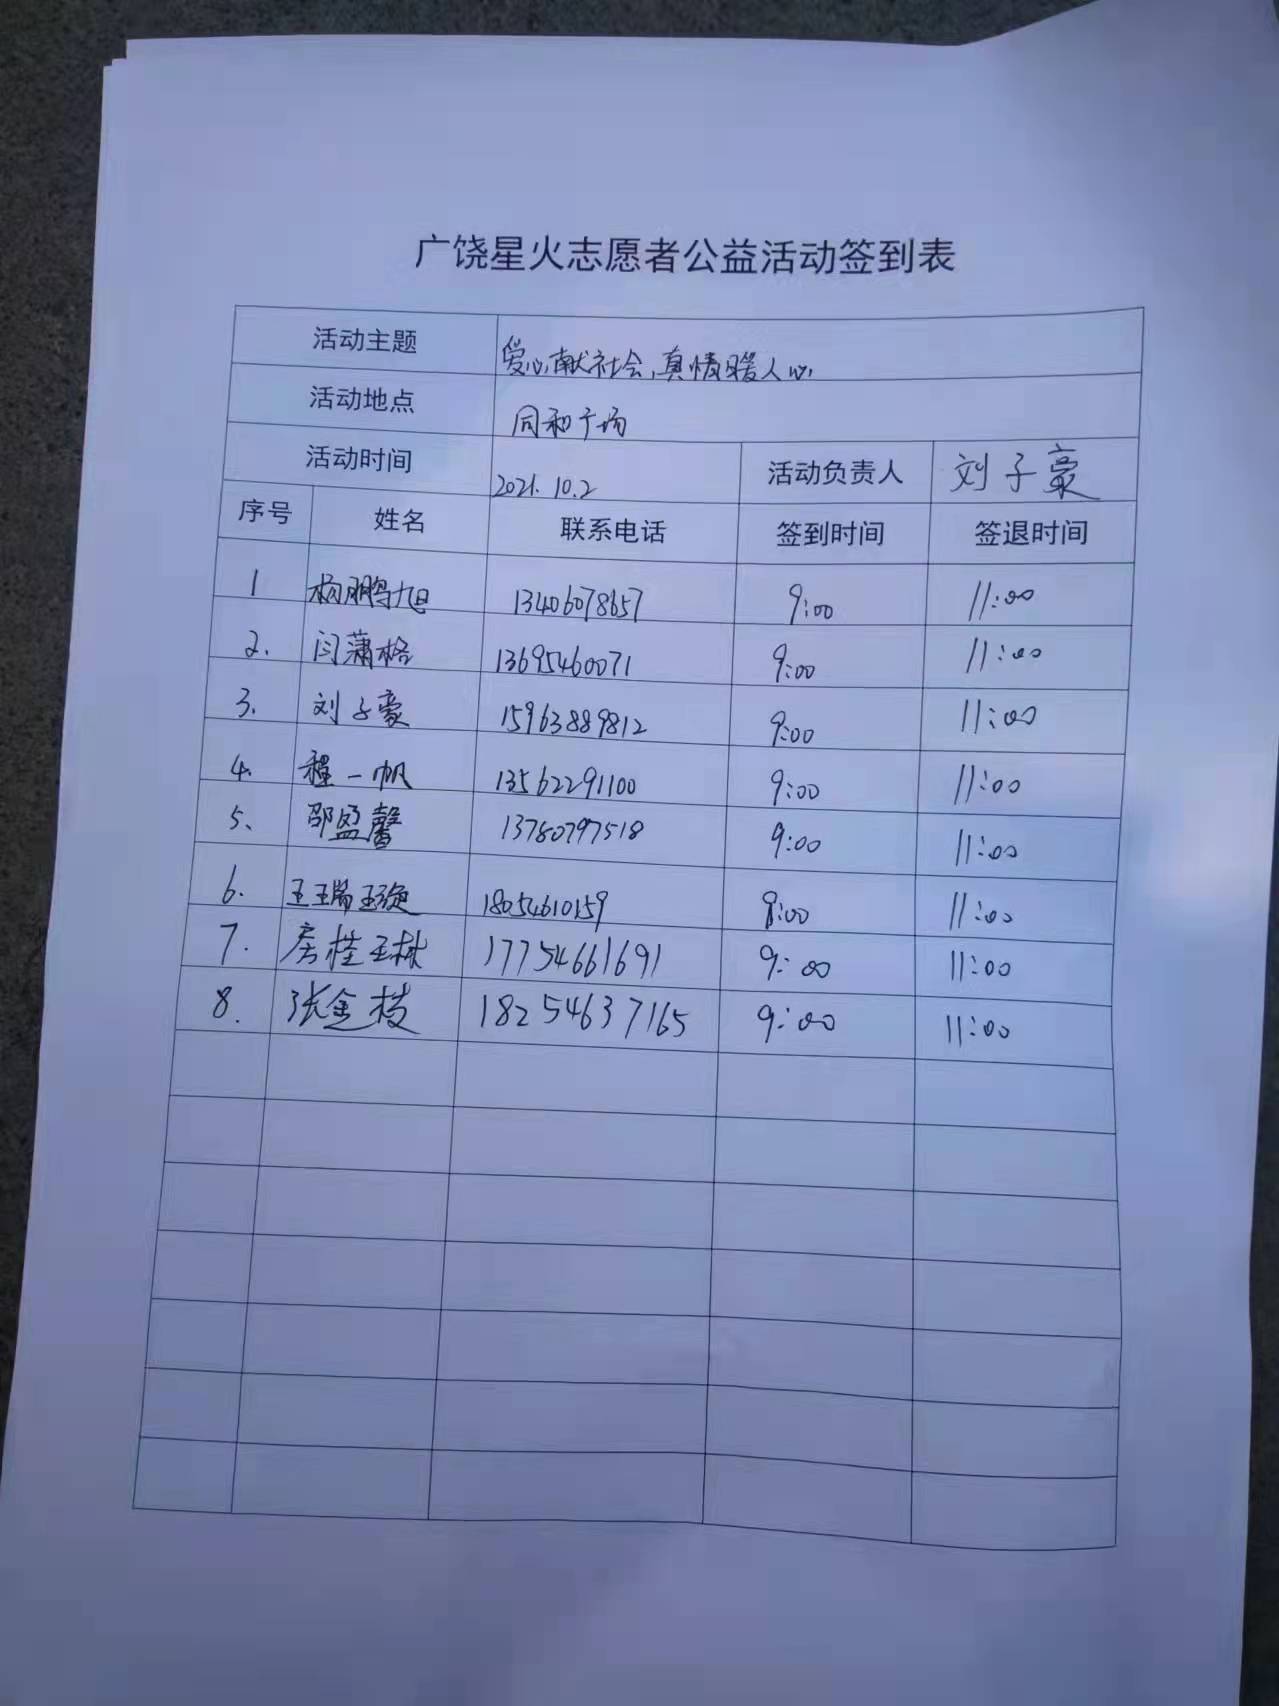 广饶星火志愿者公益活动签到表
活动主题 爱心献社会,真情暖人心
活动地点 同和广场
活动时间 2021.10.2 活动负责人 刘子豪
序号 姓名 联系电话 签到时间 签退时间
1 杨鹏旭 13406078657 9:00 11:00
2. 闫蒲格 13695460071 9:00 11:00
3. 刘子豪 15963889812 9:00 11:00
4. 程一帆 13562291100 9:00 11:00
5、 邵盈馨 13780797518 9:00 11:00
6. 王瑞琁 18054610159 9:00 11:00
7. 房桂彬 17754661691 9:00 11:00
8. 张金枝 18254637165 9:00 11:00